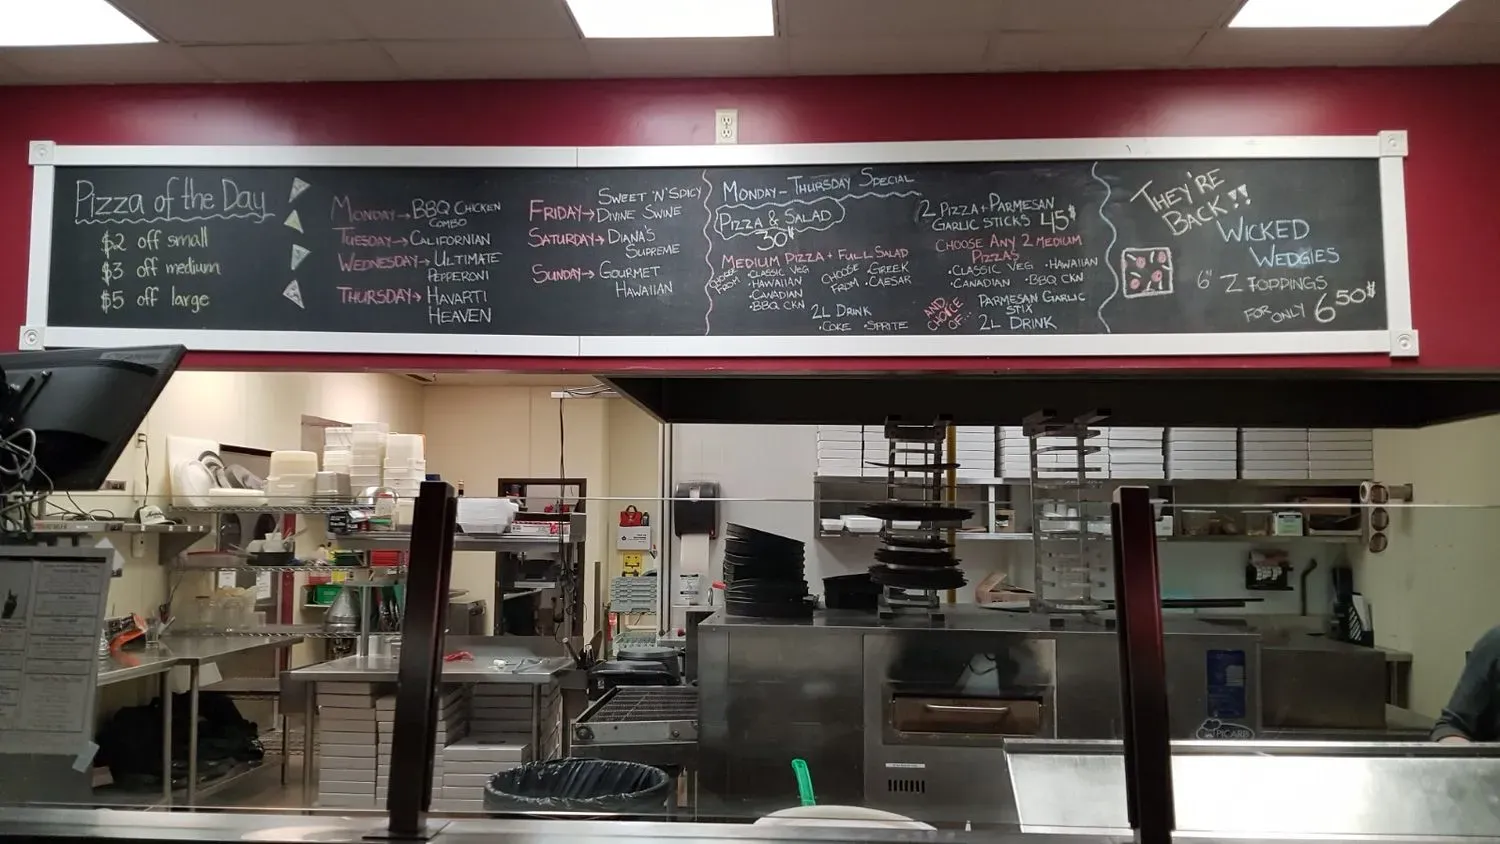 Pizza of the Day
$2 off small
$3 off medium
$5 off large
MONDAY → BBQ CHICKEN
COMBO
TUESDAY → CALIFORNIAN
WEDNESDAY → ULTIMATE
PEPPERONI
THURSDAY → HAVARTI
HEAVEN
SWEET 'N' SPICY
FRIDAY → DIVINE SWINE
SATURDAY → DIANA'S
SUPREME
SUNDAY → GOURMET
HAWAIIAN
MONDAY - THURSDAY SPECIAL
PIZZA & SALAD
30$
MEDIUM PIZZA + FULL SALAD
CHOOSE FROM
• CLASSIC VEG
• HAWAIIAN
• CANADIAN
• BBQ CKN
CHOOSE FROM
• GREEK
• CAESAR
2L DRINK
• COKE • SPRITE
2 PIZZA + PARMESAN
GARLIC STICKS 45$
CHOOSE ANY 2 MEDIUM
PIZZAS
• CLASSIC VEG • HAWAIIAN
• CANADIAN • BBQ CKN
AND CHOICE OF...
PARMESAN GARLIC
STIX
2L DRINK
THEY'RE
BACK!!
WICKED
WEDGIES
6" 2 TOPPINGS
FOR ONLY 6.50$
PICARD